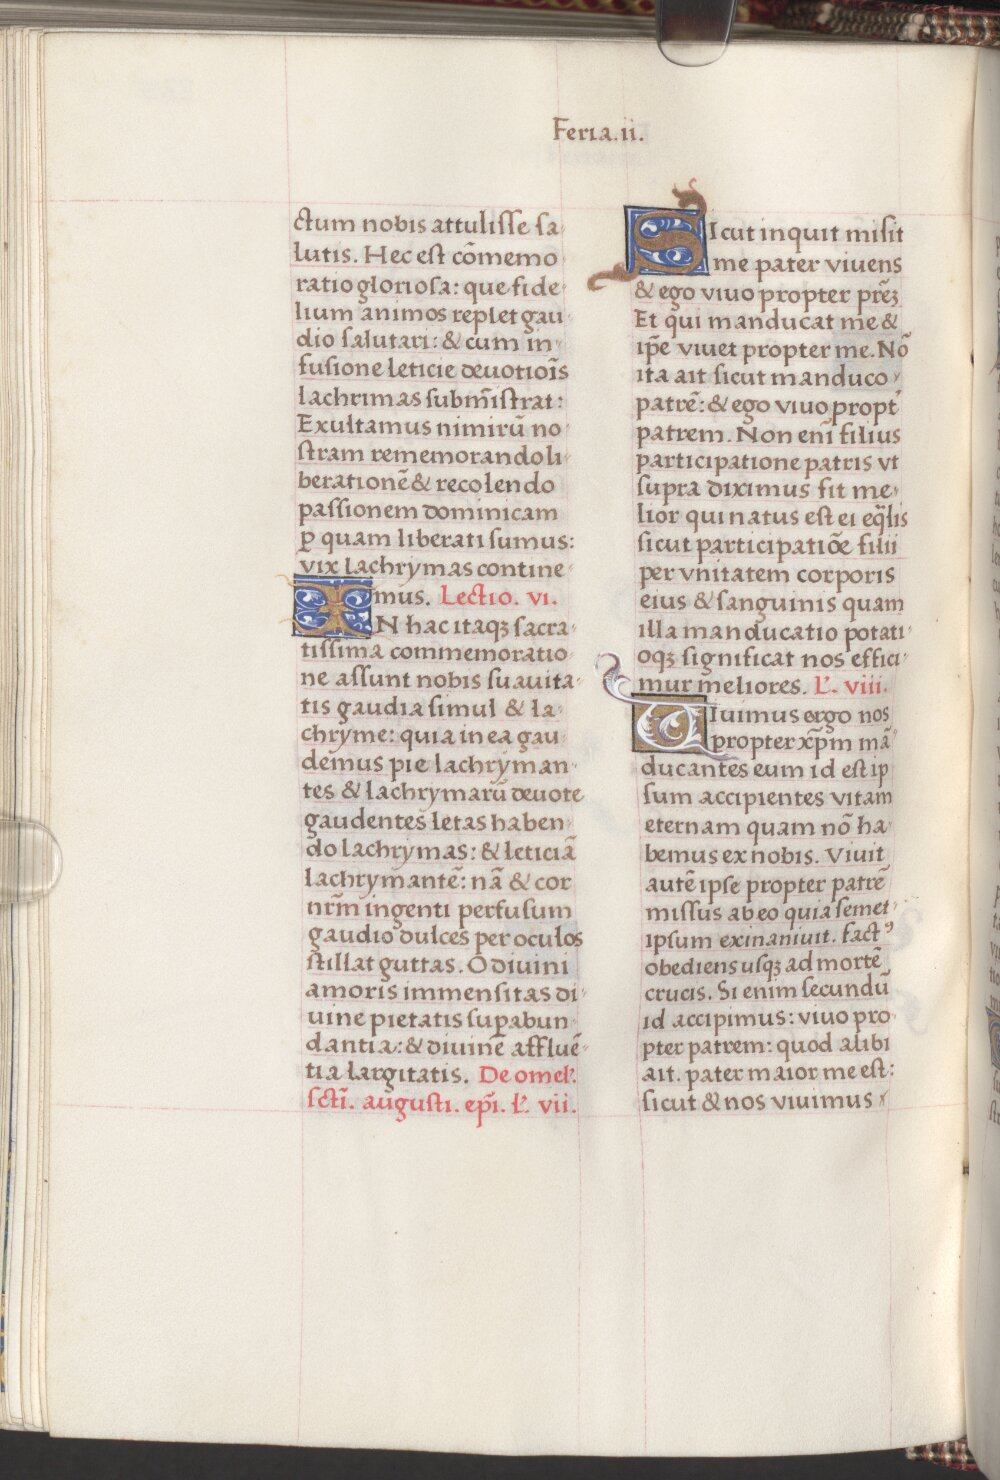 Feria.ii.
ctum nobis attulisse sa-
lutis. Hec est cōmemo-
ratio gloriosa: que fide-
lium animos replet gau-
dio salutari: & cum in-
fusione leticie deuotiōīs
lachrimas submīstrat:
Exultamus nimirū no-
stram rememorando li-
berationē & recolendo
passionem dominicam
ꝑ quam liberati sumus:
vix lachrymas contine-
mus. Lectio. vi.
IN hac itaqꝫ sacra-
tissima commemoratio-
ne assunt nobis suauita-
tis gaudia simul & la-
chryme: quia in ea gau-
demus pie lachryman-
tes & lachrymarū deuote
gaudentes letas haben-
do lachrymas: & leticiā
lachrymantē: nā & cor
nr̄m ingenti perfusum
gaudio dulces per oculos
stillat guttas. O diuini
amoris immensitas di-
uine pietatis suꝑabun-
dantia: & diuine affluē-
tia largitatis. De omel'.
sctī. augusti. ep̄i. ł. vii.
SIcut inquit misit
me pater viuens
& ego viuo propter pr̄eꝫ
Et qui manducat me &
ip̄e viuet propter me. Nō
ita ait sicut manduco
patrē: & ego viuo propt̄
patrem. Non enī filius
participatione patris vt
supra diximus fit me-
lior qui natus est ei eq̄lis
sicut participatiōe filii
per vnitatem corporis
eius & sanguinis quam
illa manducatio potati-
oqꝫ significat nos effici-
mur meliores. ł. viii.
VIuimus ergo nos
propter xp̄m mā-
ducantes eum id est ip-
sum accipientes vitam
eternam quam nō ha-
bemus ex nobis. Viuit
autē ipse propter patrē
missus ab eo quia semet-
ipsum exinaniuit. factꝰ
obediens usqꝫ ad mortē
crucis. Si enim secundū
id accipimus: viuo pro-
pter patrem: quod alibi
ait. pater maior me est:
sicut & nos viuimus